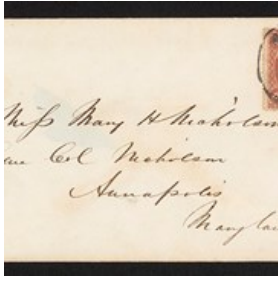 Miss Mary H Nicholson
Care Col Nicholson
Annapolis
Maryla